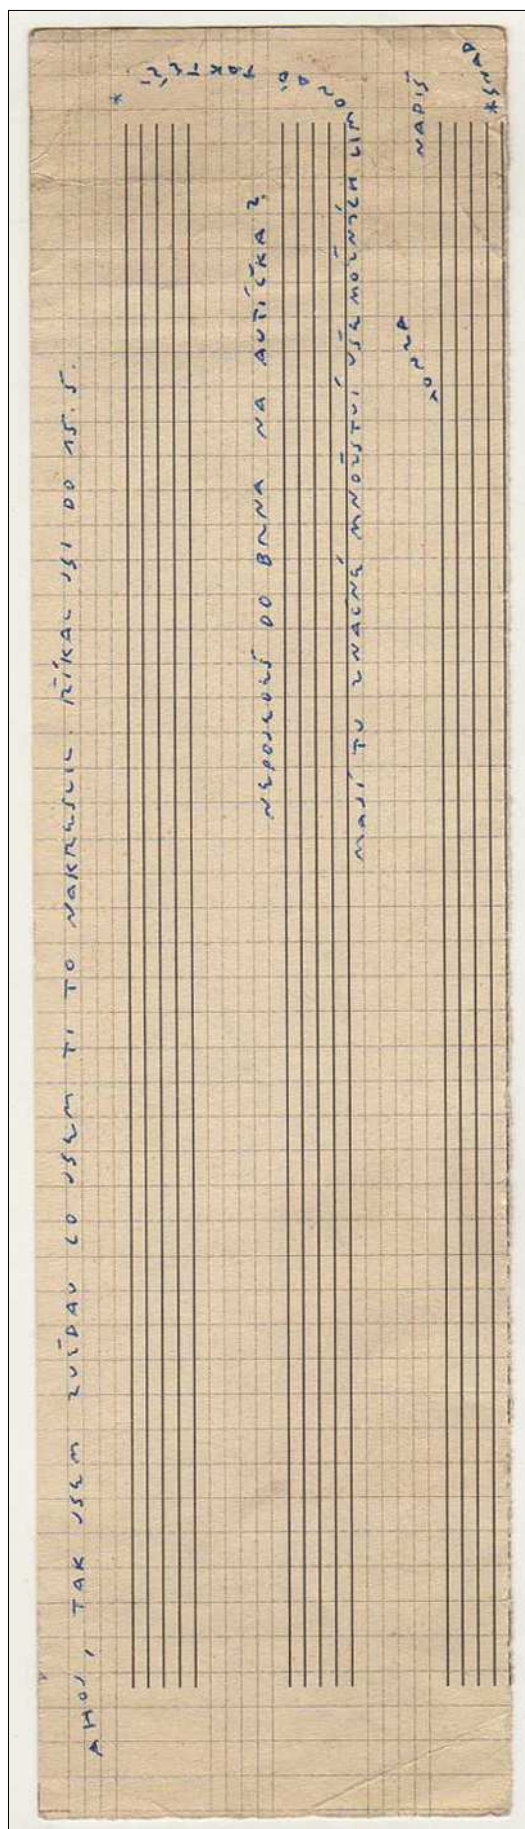 AHOJ, TAK JSEM ZVĚDAV CO JSEM TI TO NAKRESLIL. ŘÍKAL JSI DO 15.5.
NEPOJEDEŠ DO BRNA NA AUTÍČKA?
MAJÍ TU ZNAČNÉ MNOŽSTVÍ VŠEMOŽNÝCH LIMONÁD
*
NAPIŠ
HONZA
*SNAD